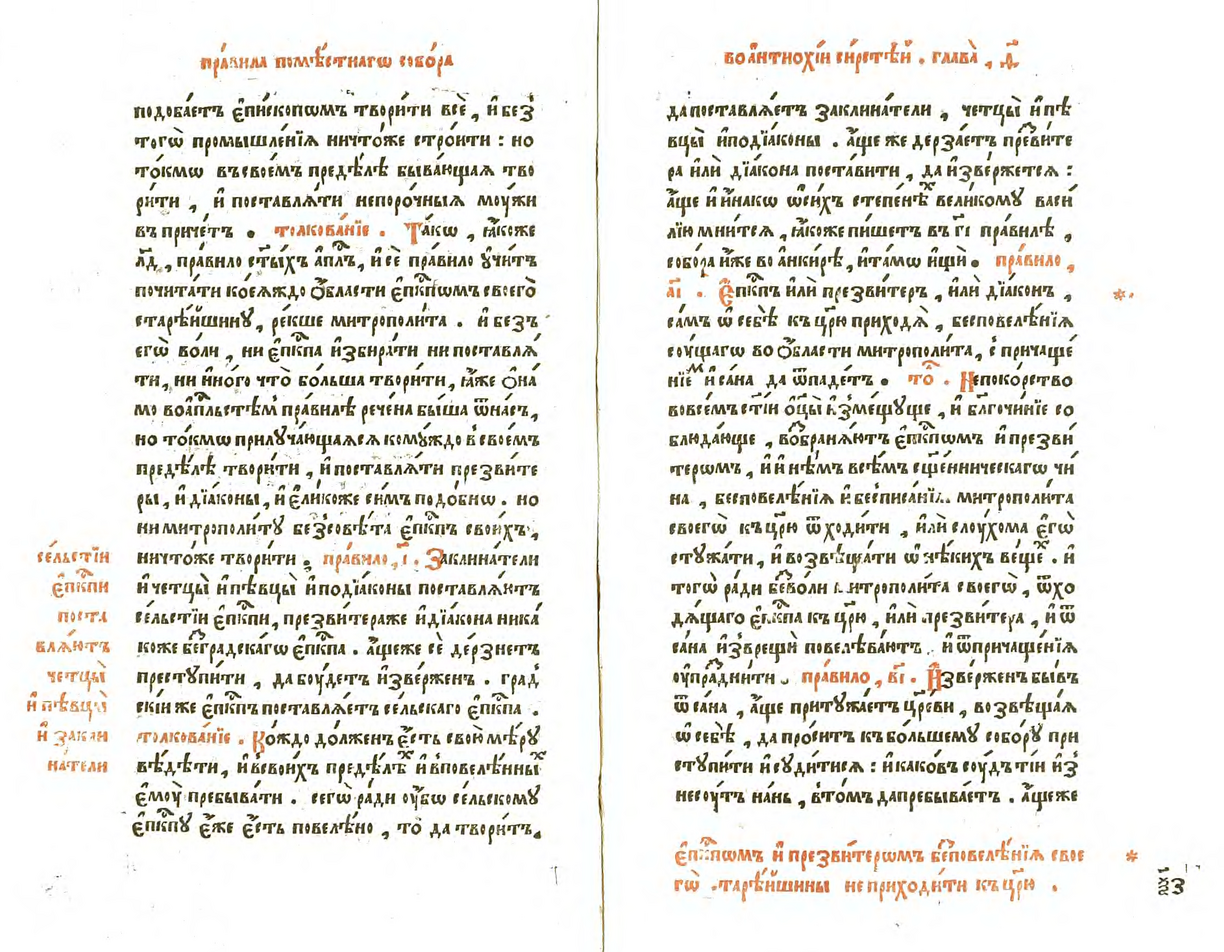 пра́вила помѣ́стнагѡ собо́ра
подоба́етъ є҆пи́скопѡмъ твори́ти всѐ, и҆ без̾
тогѡ̀ промышле́нїѧ ничто́же стро́ити : но
то́кмѡ въсвое́мъ предѣ́лѣ быва́ющаѧ тво
ри́ти , и҆ поставлѧ́ти непоро́чныѧ мꙋ́жи
въ при́четъ . толкова́нїе . Та́кѡ , ꙗ҆́коже
л҃д, пра́вило ст҃ы́хъ а҆пл҃ъ, и҆ сѐ пра́вило ᲂу҆чи́тъ
почита́ти коеѧ́ждо ѻ҆́бласти є҆пⷭ҇кпѡмъ своего̀
старѣ́йшинꙋ, ре́кше митрополи́та . и҆ безъ
єгѡ̀ во́ли , ни є҆пⷭ҇кпа и҆збира́ти ни поставлѧ́
ти, ни и҆но́го что̀ бо́льша твори́ти, ꙗ҆́же ѻ҆на́
мо воа҆пⷭ҇льстѣ́мъ пра́вилѣ рече́на бы́ша ѿна́съ,
но то́кмѡ прилꙋча́ющаѧсѧ комꙋ́ждо в̾свое́мъ
предѣ́лѣ твори́ти , и҆ поставлѧ́ти презви́те
ры, и҆ дїа́коны, и҆ є҆ли́коже си́мъ подо́бнѡ . но
ни митрополи́тꙋ без̾совѣ́та є҆пⷭ҇кпъ свои́хъ,
ничто́же твори́ти . пра́вило, і҃ . Заклина́тели
и҆ четцы̀ и҆ пѣвцы̀ и҆ подїа́коны поставлѧ́ютъ
се́льстїи є҆пⷭ҇кпи, презви́тера же и҆ дїа́кона ника́
коже без̾градскагѡ є҆пⷭ҇кпа . а҆́щеже сѐ де́рзнетъ
престꙋпи́ти , да бꙋ́детъ и҆зве́рженъ . град
скі́и же є҆пⷭ҇кпъ поставлѧ́етъ се́льскаго є҆пⷭ҇кпа .
толкова́нїе . Ко́ждо до́лженъ є҆́сть свою̀ мѣ́рꙋ
вѣ́дѣти, и҆ в̾свои́хъ предѣ́лѣⷯ и҆ в̾повелѣ́нныⷯ
є҆мꙋ̀ пребыва́ти . сегѡ̀ ра́ди ᲂу҆́бѡ се́льскомꙋ
є҆пⷭ҇кпꙋ є҆́же є҆́сть повелѣ́но , то̀ да твори́тъ.
се́льстїи
є҆пⷭ҇кпи
поста
влѧ́ютъ
четцы̀
и҆ пѣвцы̀
и҆ закли
на́тели
во а҆нтїохі́и си́рстѣй . глава̀ , д҃
да поставлѧ́етъ заклина́тели , четцы̀ и҆ пѣ
вцы̀ и҆подїа́коны . а҆́ще же дерза́етъ презви́те
ра и҆лѝ дїа́кона поста́вити , да и҆зве́ржетсѧ :
а҆́ще и҆ и҆на́кѡ ѡ҆си́хъ степе́неⷯ вели́комꙋ васи́
лїю мни́тсѧ , ꙗ҆́коже пи́шетъ въ г҃і пра́вилѣ ,
собо́ра и҆́же во а҆нки́рѣ, и҆ та́мѡ и҆щѝ . пра́вило ,
а҃і . Є҆пⷭ҇кпъ и҆лѝ презви́теръ , и҆лѝ дїа́конъ ,
са́мъ ѡ҆ себѣ̀ къ цр҃ю̀ приходѧ̀ , бесповелѣ́нїѧ
сꙋ́щагѡ во ѻ҆́бласти митрополи́та, с̾ причаще́
нїеⷨ и҆ са́на да ѿпаде́тъ . то̑ . Непоко́рство
вовсе́мъ ст҃і́и ѻ҆ц҃ы̀ и҆зме́щꙋще , и҆ благочи́нїе со
блюда́юще , возбранѧ́ютъ є҆пⷭ҇кпѡмъ и҆ презви́
терѡмъ, и҆ и҆нѣ́мъ всѣ́мъ сщ҃е́нническагѡ чи́
на , бесповелѣ́нїѧ и҆ бесписа́нїѧ митрополи́та
своегѡ̀ къ цр҃ю̀ ѿходи́ти , и҆лѝ слꙋ́хома є҆гѡ̀
стꙋжа́ти, и҆ возвѣща́ти ѡ҆ нѣ́кихъ ве́щеⷯ . и҆
тогѡ̀ ра́ди без̾во́ли митрополи́та своегѡ̀ , ѿхо
дѧ́щаго є҆пⷭ҇кпа къ цр҃ю̀ , и҆лѝ презви́тера , и҆ ѿ
са́на и҆зврещѝ повелѣва́ютъ . и҆ ѿпричаще́нїѧ
ᲂу҆праздни́ти . пра́вило , в҃і . И҆зве́рженъ бы́въ
ѿ са́на , а҆́ще притꙋжа́етъ цр҃е́ви , возвѣща́ѧ
ѡ҆ себѣ̀ , да про́ситъ къ бо́льшемꙋ собо́рꙋ при
стꙋпи́ти и҆ сꙋди́тисѧ : и҆ како́въ сꙋ́дъ ті́и и҆з̾
несꙋ́тъ на́нь , в̾то́мъ да пребыва́етъ . а҆́щеже
є҆пⷭ҇кпѡмъ и҆ презви́терѡмъ бесповелѣ́нїѧ свое
гѡ̀ старѣ́йшины не приходи́ти къ цр҃ю̀ .